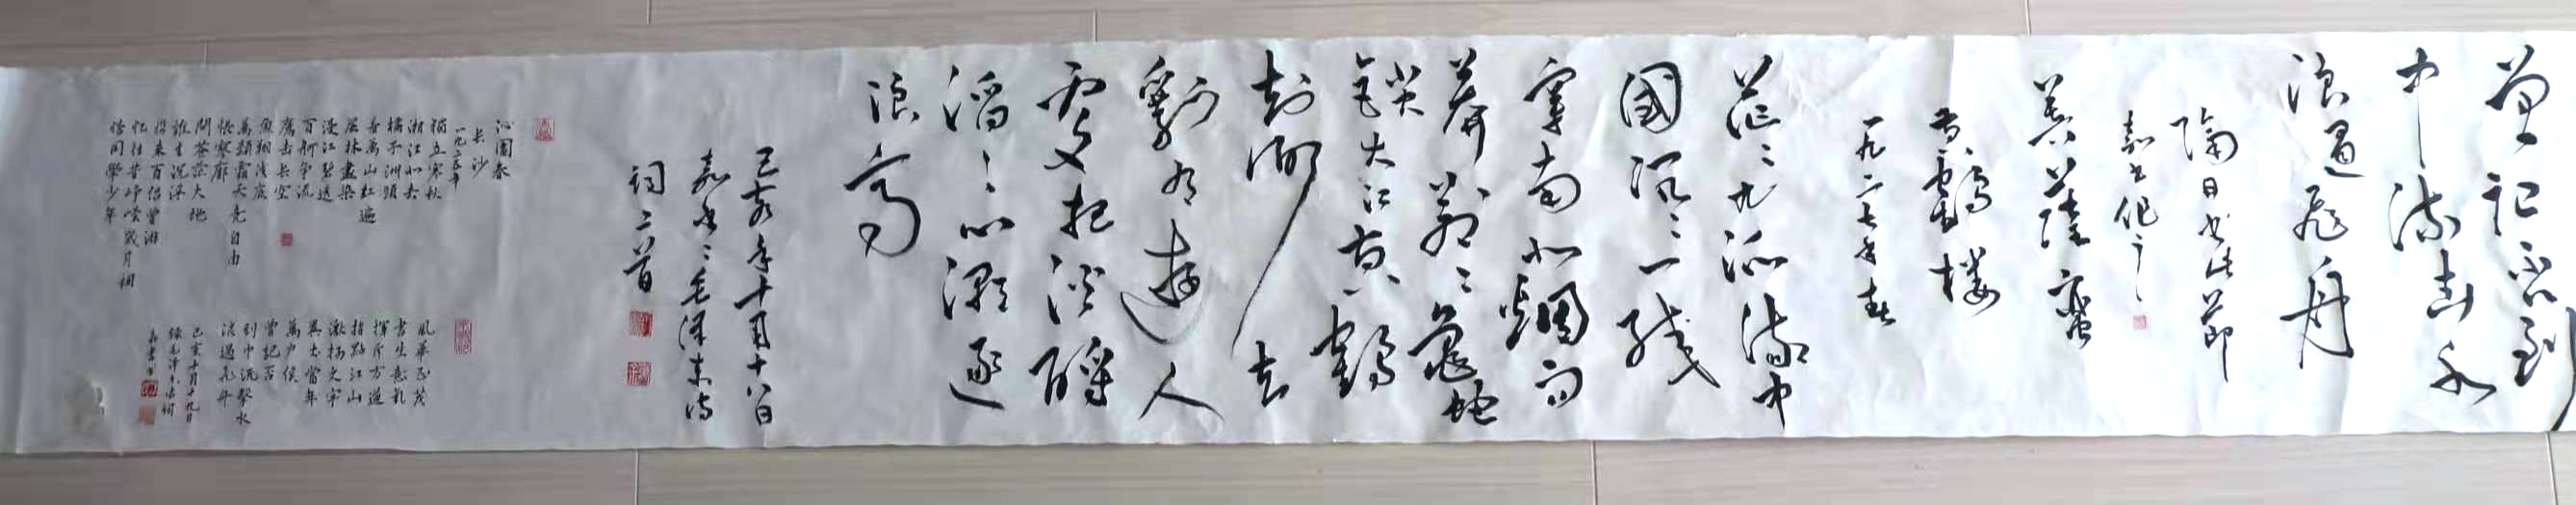 曾记否到
中流击水
浪遏飞舟
隔日书此节
菩薩蛮
黄鹤楼
一九二七年春
茫〻九派流中
國沉〻一线
穿南北烟雨
莽苍〻龟蛇
锁大江黄鹤
知何去
剩有遊人
處把酒酹
滔〻心潮逐
浪高
己亥年十月十八日
嘉书〻毛泽东诗
词二首
沁園春
长沙
一九二五年
獨立寒秋
湘江北去
橘子洲頭
看萬山红遍
层林盡染
漫江碧透
百舸争流
鹰击长空
魚翔浅底
萬類霜天竞自由
怅寥廓
問苍茫大地
誰主沉浮
携来百侣曾游
忆往昔峥嵘岁月稠
恰同學少年
風華正茂
书生意氣
揮斥方遒
指點江山
激揚文字
粪土當年
萬户侯
曾记否
到中流擊水
浪遏飞舟
己亥十月十九日
錄毛泽东诗词
嘉書